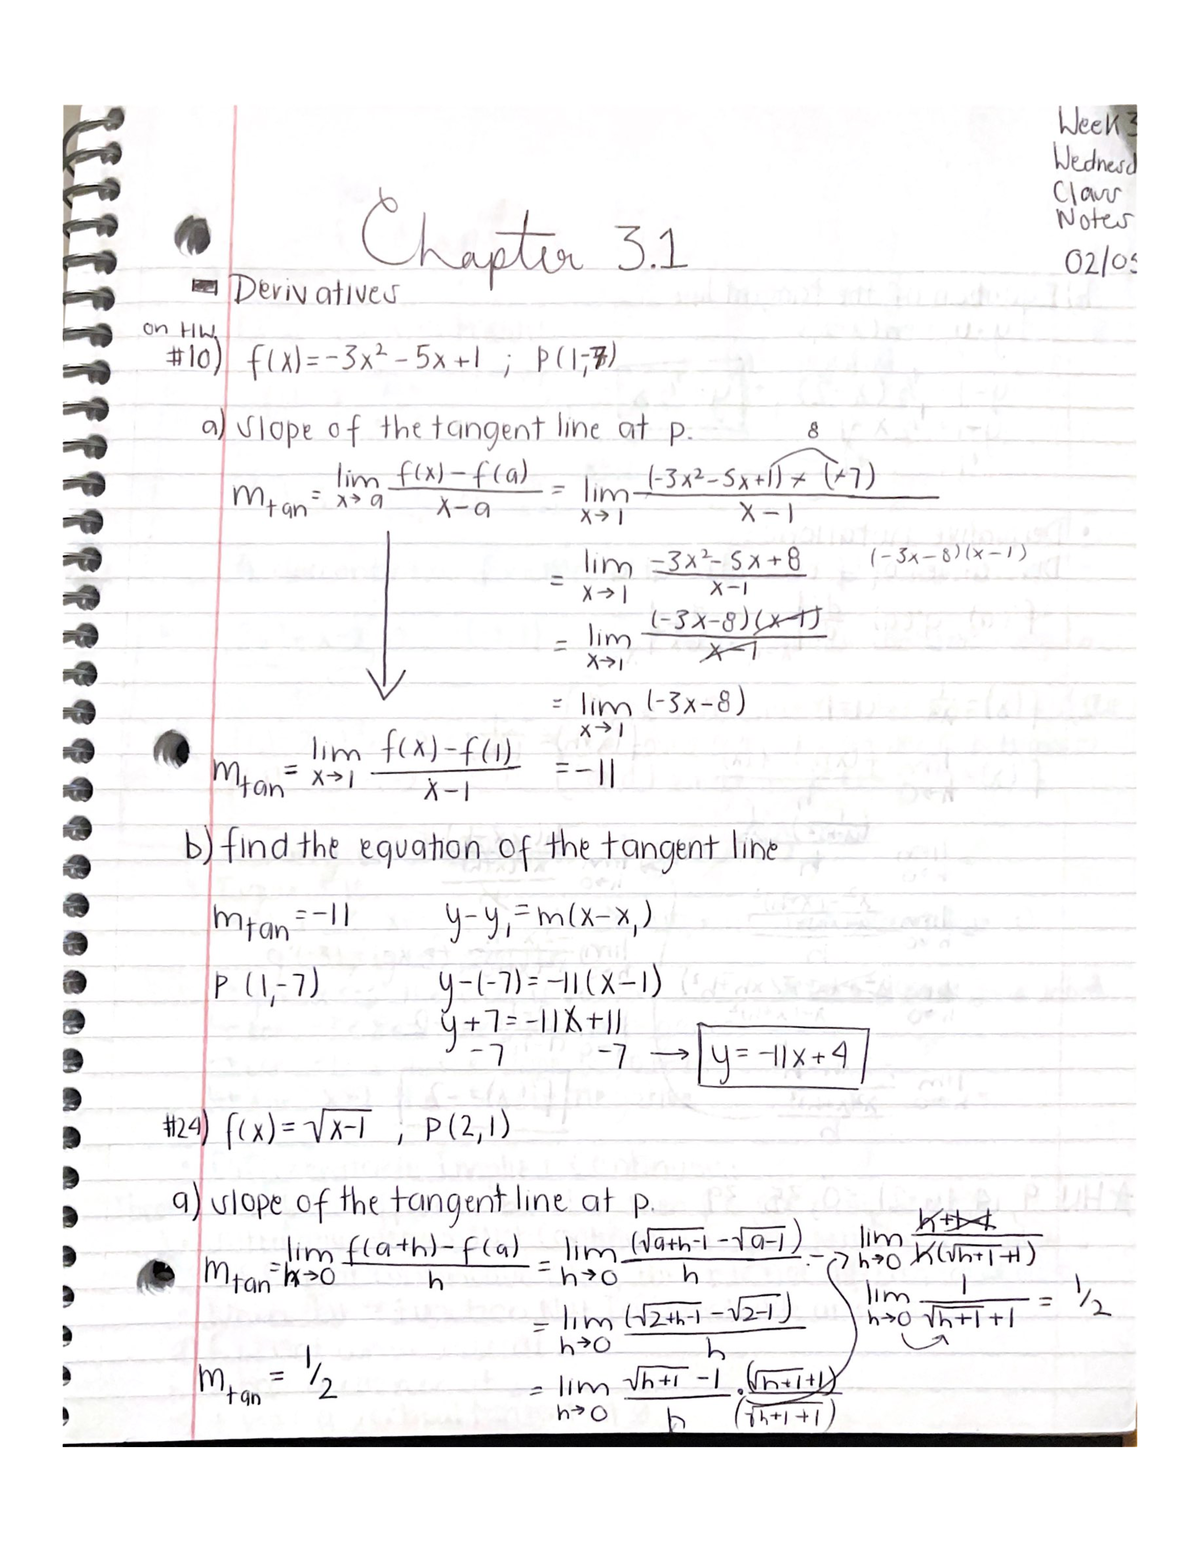 Week 3
Wednesd
Class
Notes
02/05
Chapter 3.1
Derivatives
on HW
#10) f(x)=-3x²-5x+1 ; P(1,-7)
a) slope of the tangent line at p.
8
m_tan = lim x→a f(x)-f(a) / x-a = lim x→1 (-3x²-5x+1) + (+7) / x-1
= lim x→1 -3x²-5x+8 / x-1 (-3x-8)(x-1)
= lim x→1 (-3x-8)(x-1) / x-1
= lim x→1 (-3x-8)
m_tan = lim x→1 f(x)-f(1) / x-1 = -11
b) find the equation of the tangent line
m_tan = -11 y-y₁=m(x-x₁)
P (1,-7) y-(-7)=-11(x-1)
y+7=-11x+11
-7 -7 → y=-11x+4
#24) f(x)=√x-1 ; P(2,1)
a) slope of the tangent line at p.
m_tan = lim h→0 f(a+h)-f(a) / h = lim h→0 (√a+h-1 - √a-1) / h → lim h→0 h+1-1 / h(√h+1+1)
= lim h→0 (√2+h-1 - √2-1) / h lim h→0 1 / √h+1+1 = 1/2
m_tan = 1/2 = lim h→0 √h+1 -1 / h · (√h+1+1) / (√h+1+1)